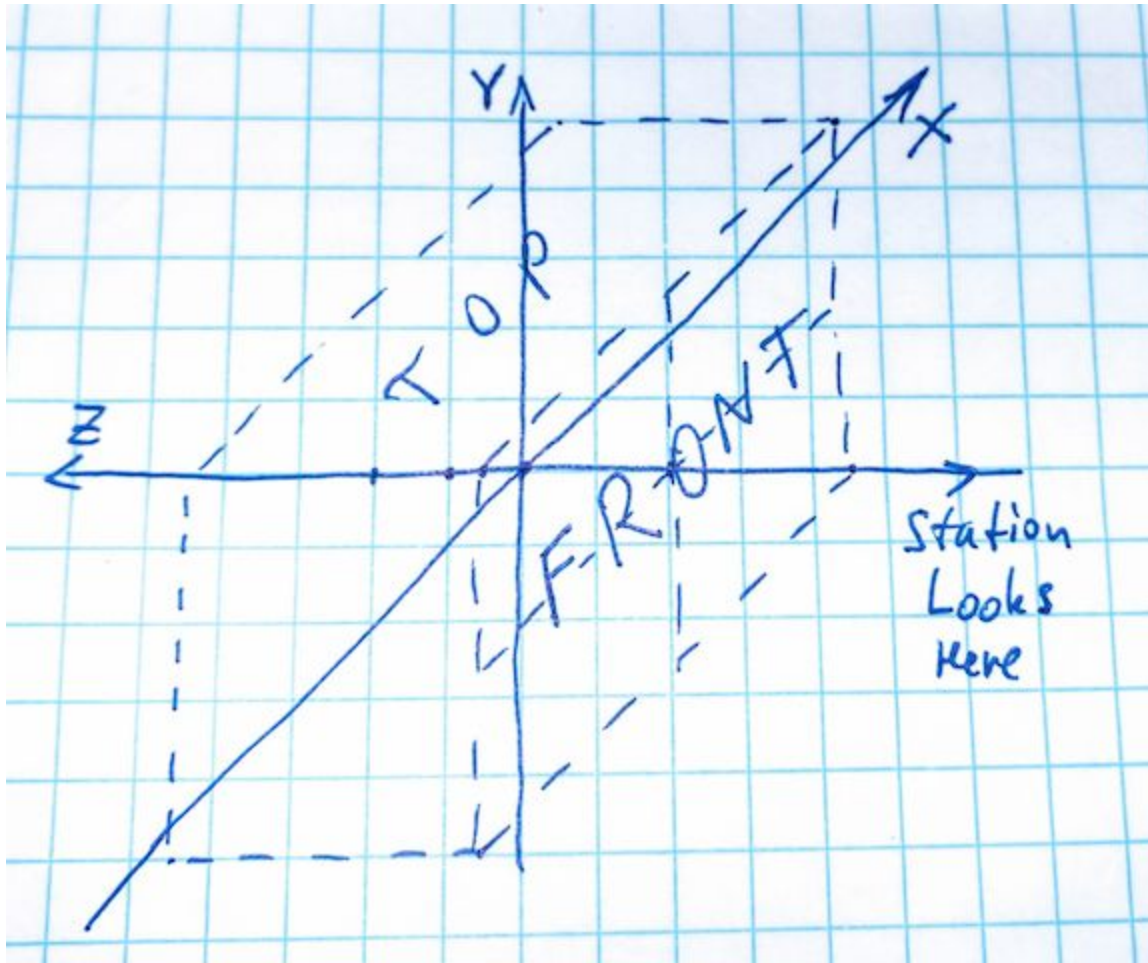 Y
X
TOP
Z
FRONT
Station
Looks
Here